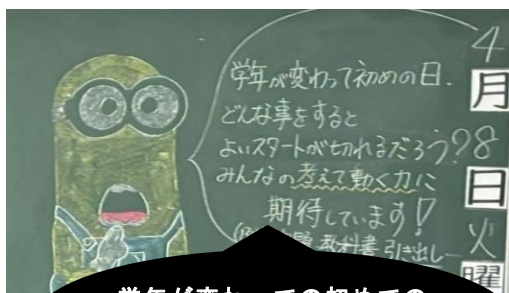 学年が変わって初めの日.
どんな事をすると
よいスタートが切れるだろう?
みんなの考えて動く力に
期待しています!
教科書 引き出し
4
月
8
日
火
曜
学年が変わっての初めての